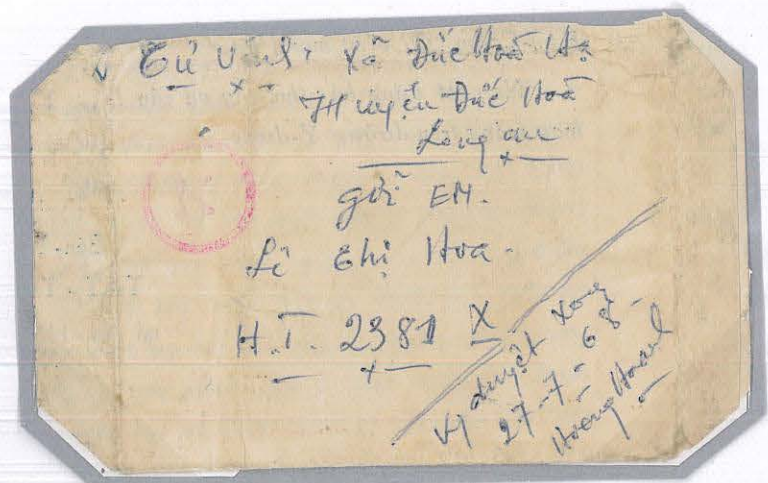 Xã Đức Hoà Hạ
Huyện Đức Hoà
Long an
gửi EM.
Lê Thị Hoa.
H.T. 2381 X
duyệt xong
27-7-68
Hoàng